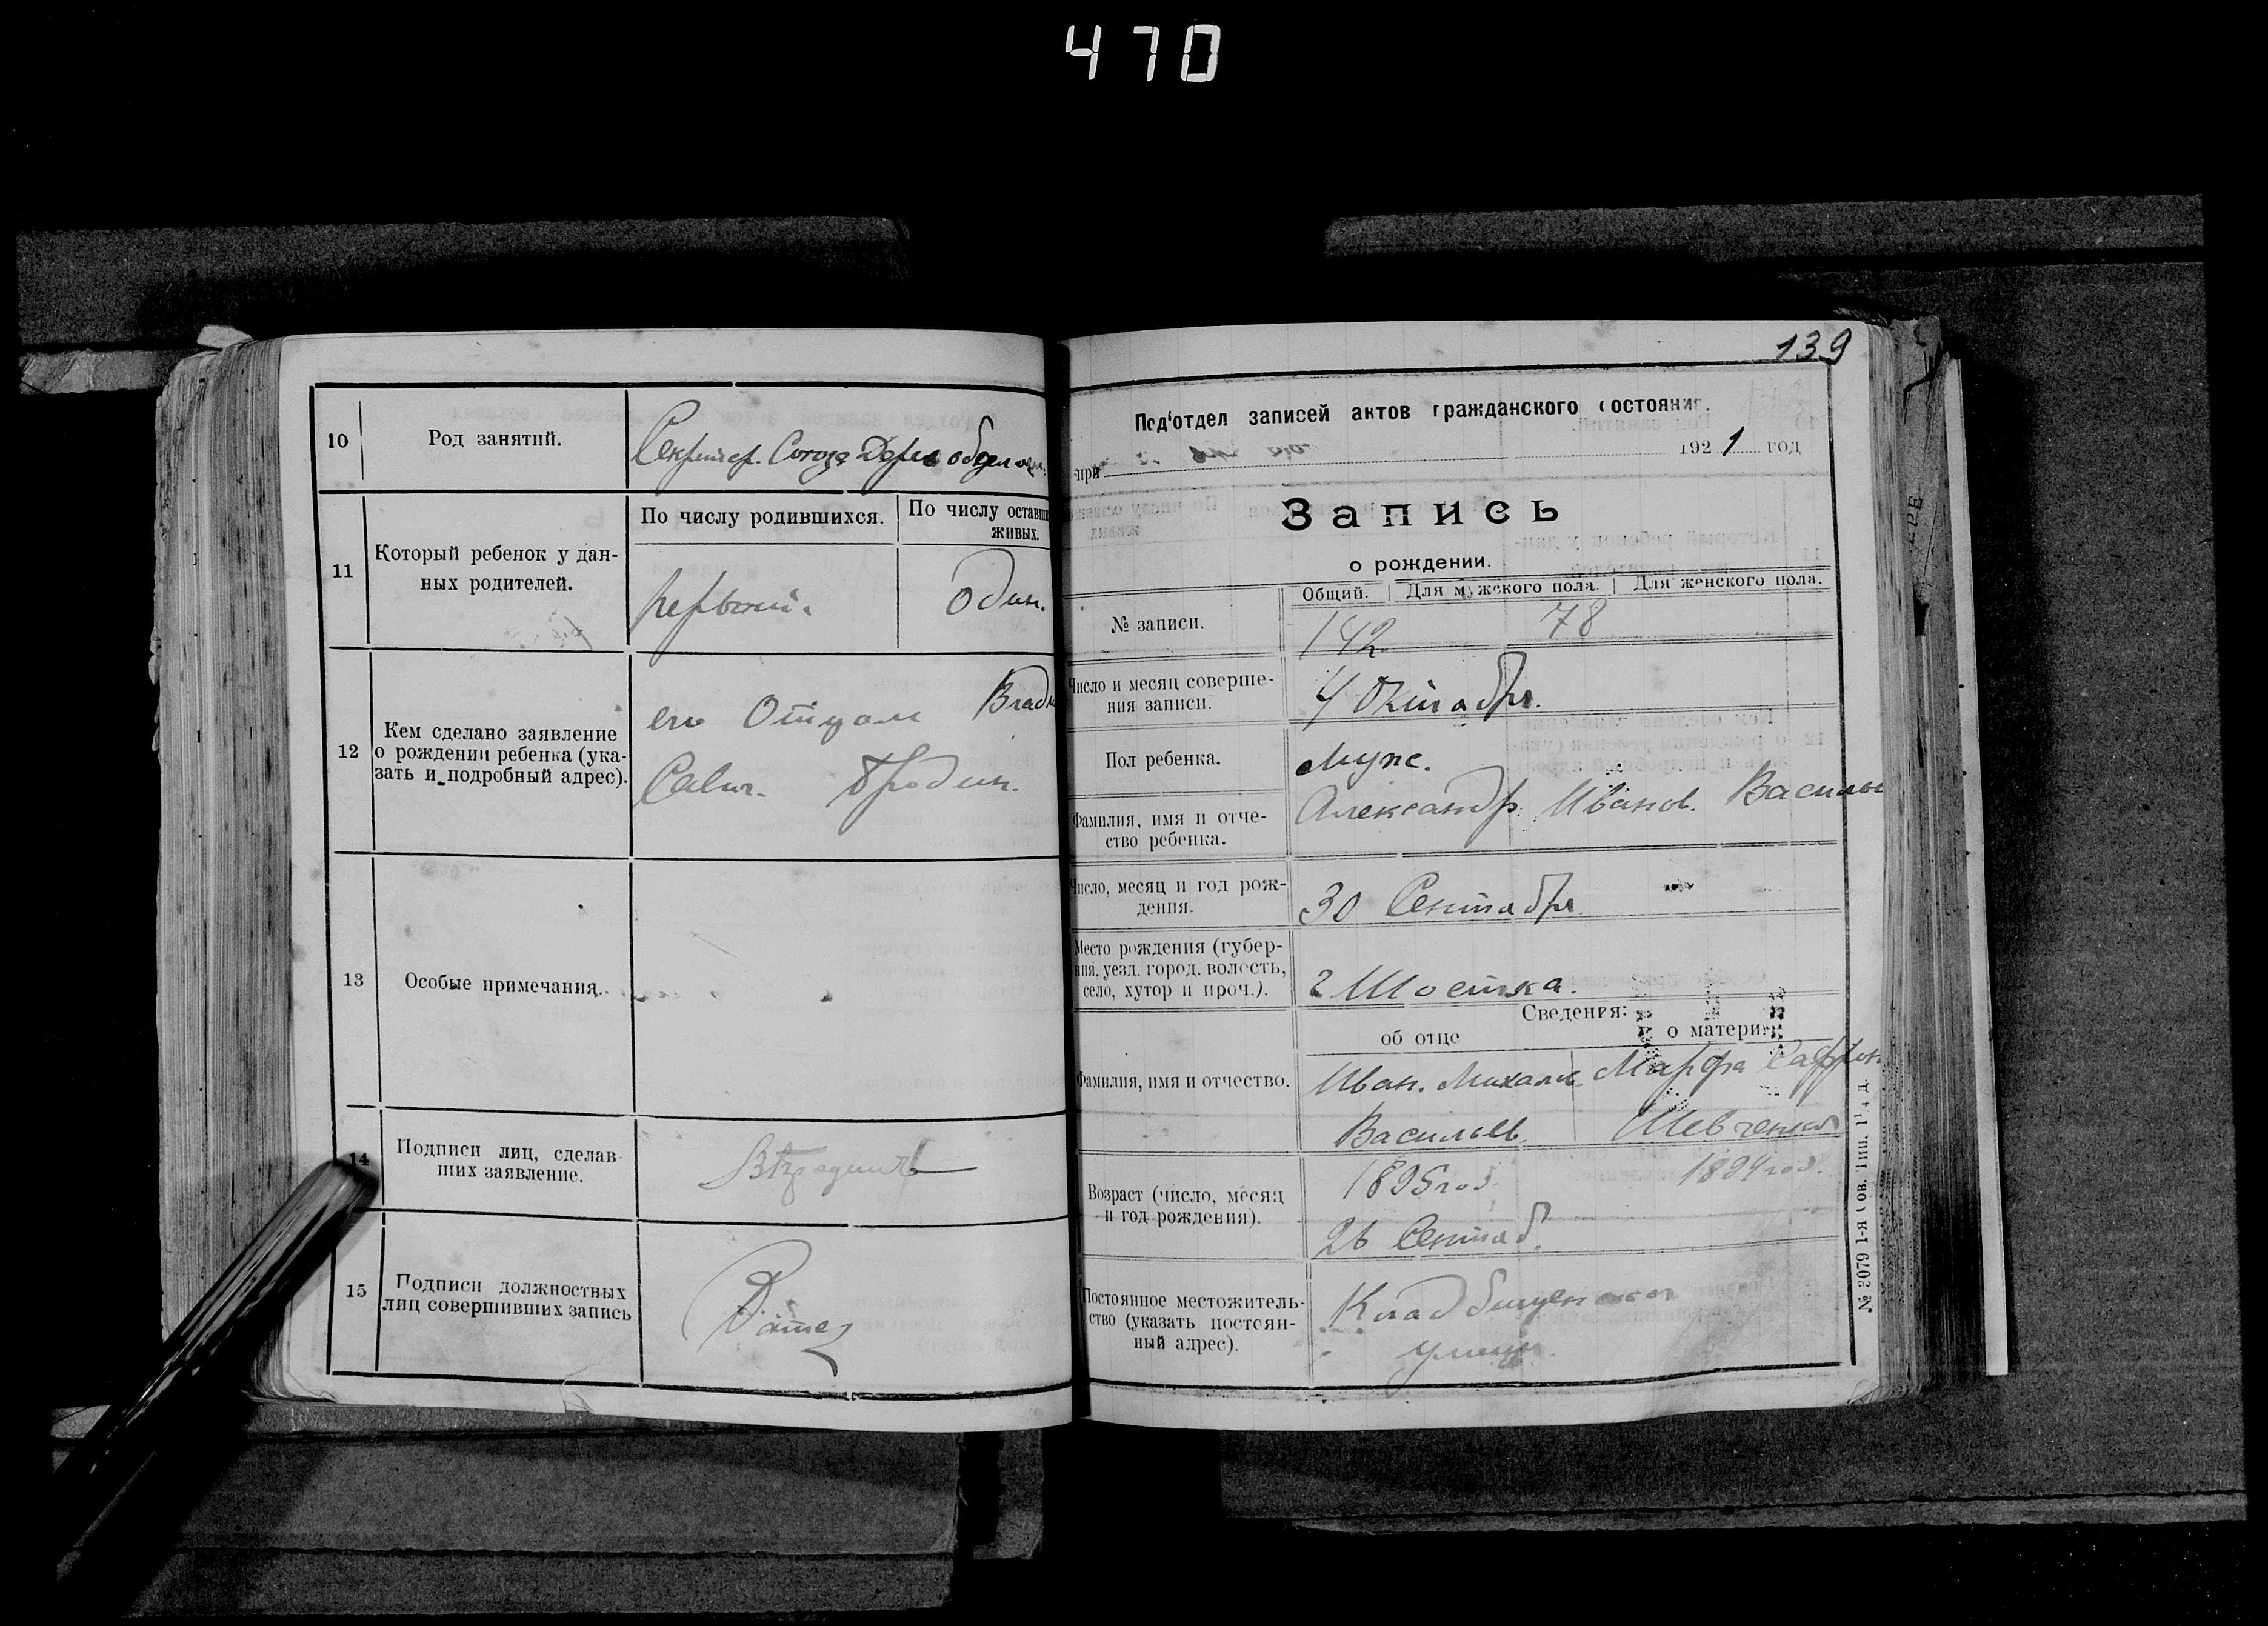 470
10
Род занятий.
Секретар. Союза Дерево обделочн.
11
Который ребенок у дан-
ных родителей.
По числу родившихся.
По числу оставши
живых.
первый.
Один.
12
Кем сделано заявление
о рождении ребенка (ука-
зать и подробный адрес).
его Отцом Влад
Савич. Бродин.
13
Особые примечания.
14
Подписи лиц, сделав-
ших заявление.
15
Подписи должностных
лиц совершивших запись
139
Под'отдел записей актов гражданского состояния.
при
1921 год
Запись
о рождении.
№ записи.
Общий. Для мужского пола. Для женского пола.
142 78
Число и месяц соверше-
ния записи.
4 Октября.
Пол ребенка.
Муж.
Фамилия, имя и отче-
ство ребенка.
Александр Иванов. Василье
Число, месяц и год рож-
дения.
30 Сентября
Место рождения (губер-
ния, уезд, город, волость,
село, хутор и проч.).
г Шостка.
Сведения:
об отце
о матери
Фамилия, имя и отчество.
Иван. Михайл.
Васильев
Марфа
Шевченко
Возраст (число, месяц
и год рождения).
1895 год.
26 Сентяб.
1894 год.
Постоянное местожитель-
ство (указать постоян-
ный адрес).
Кладбищенская
улица.
№ 2079 1-я Сов. Тип.